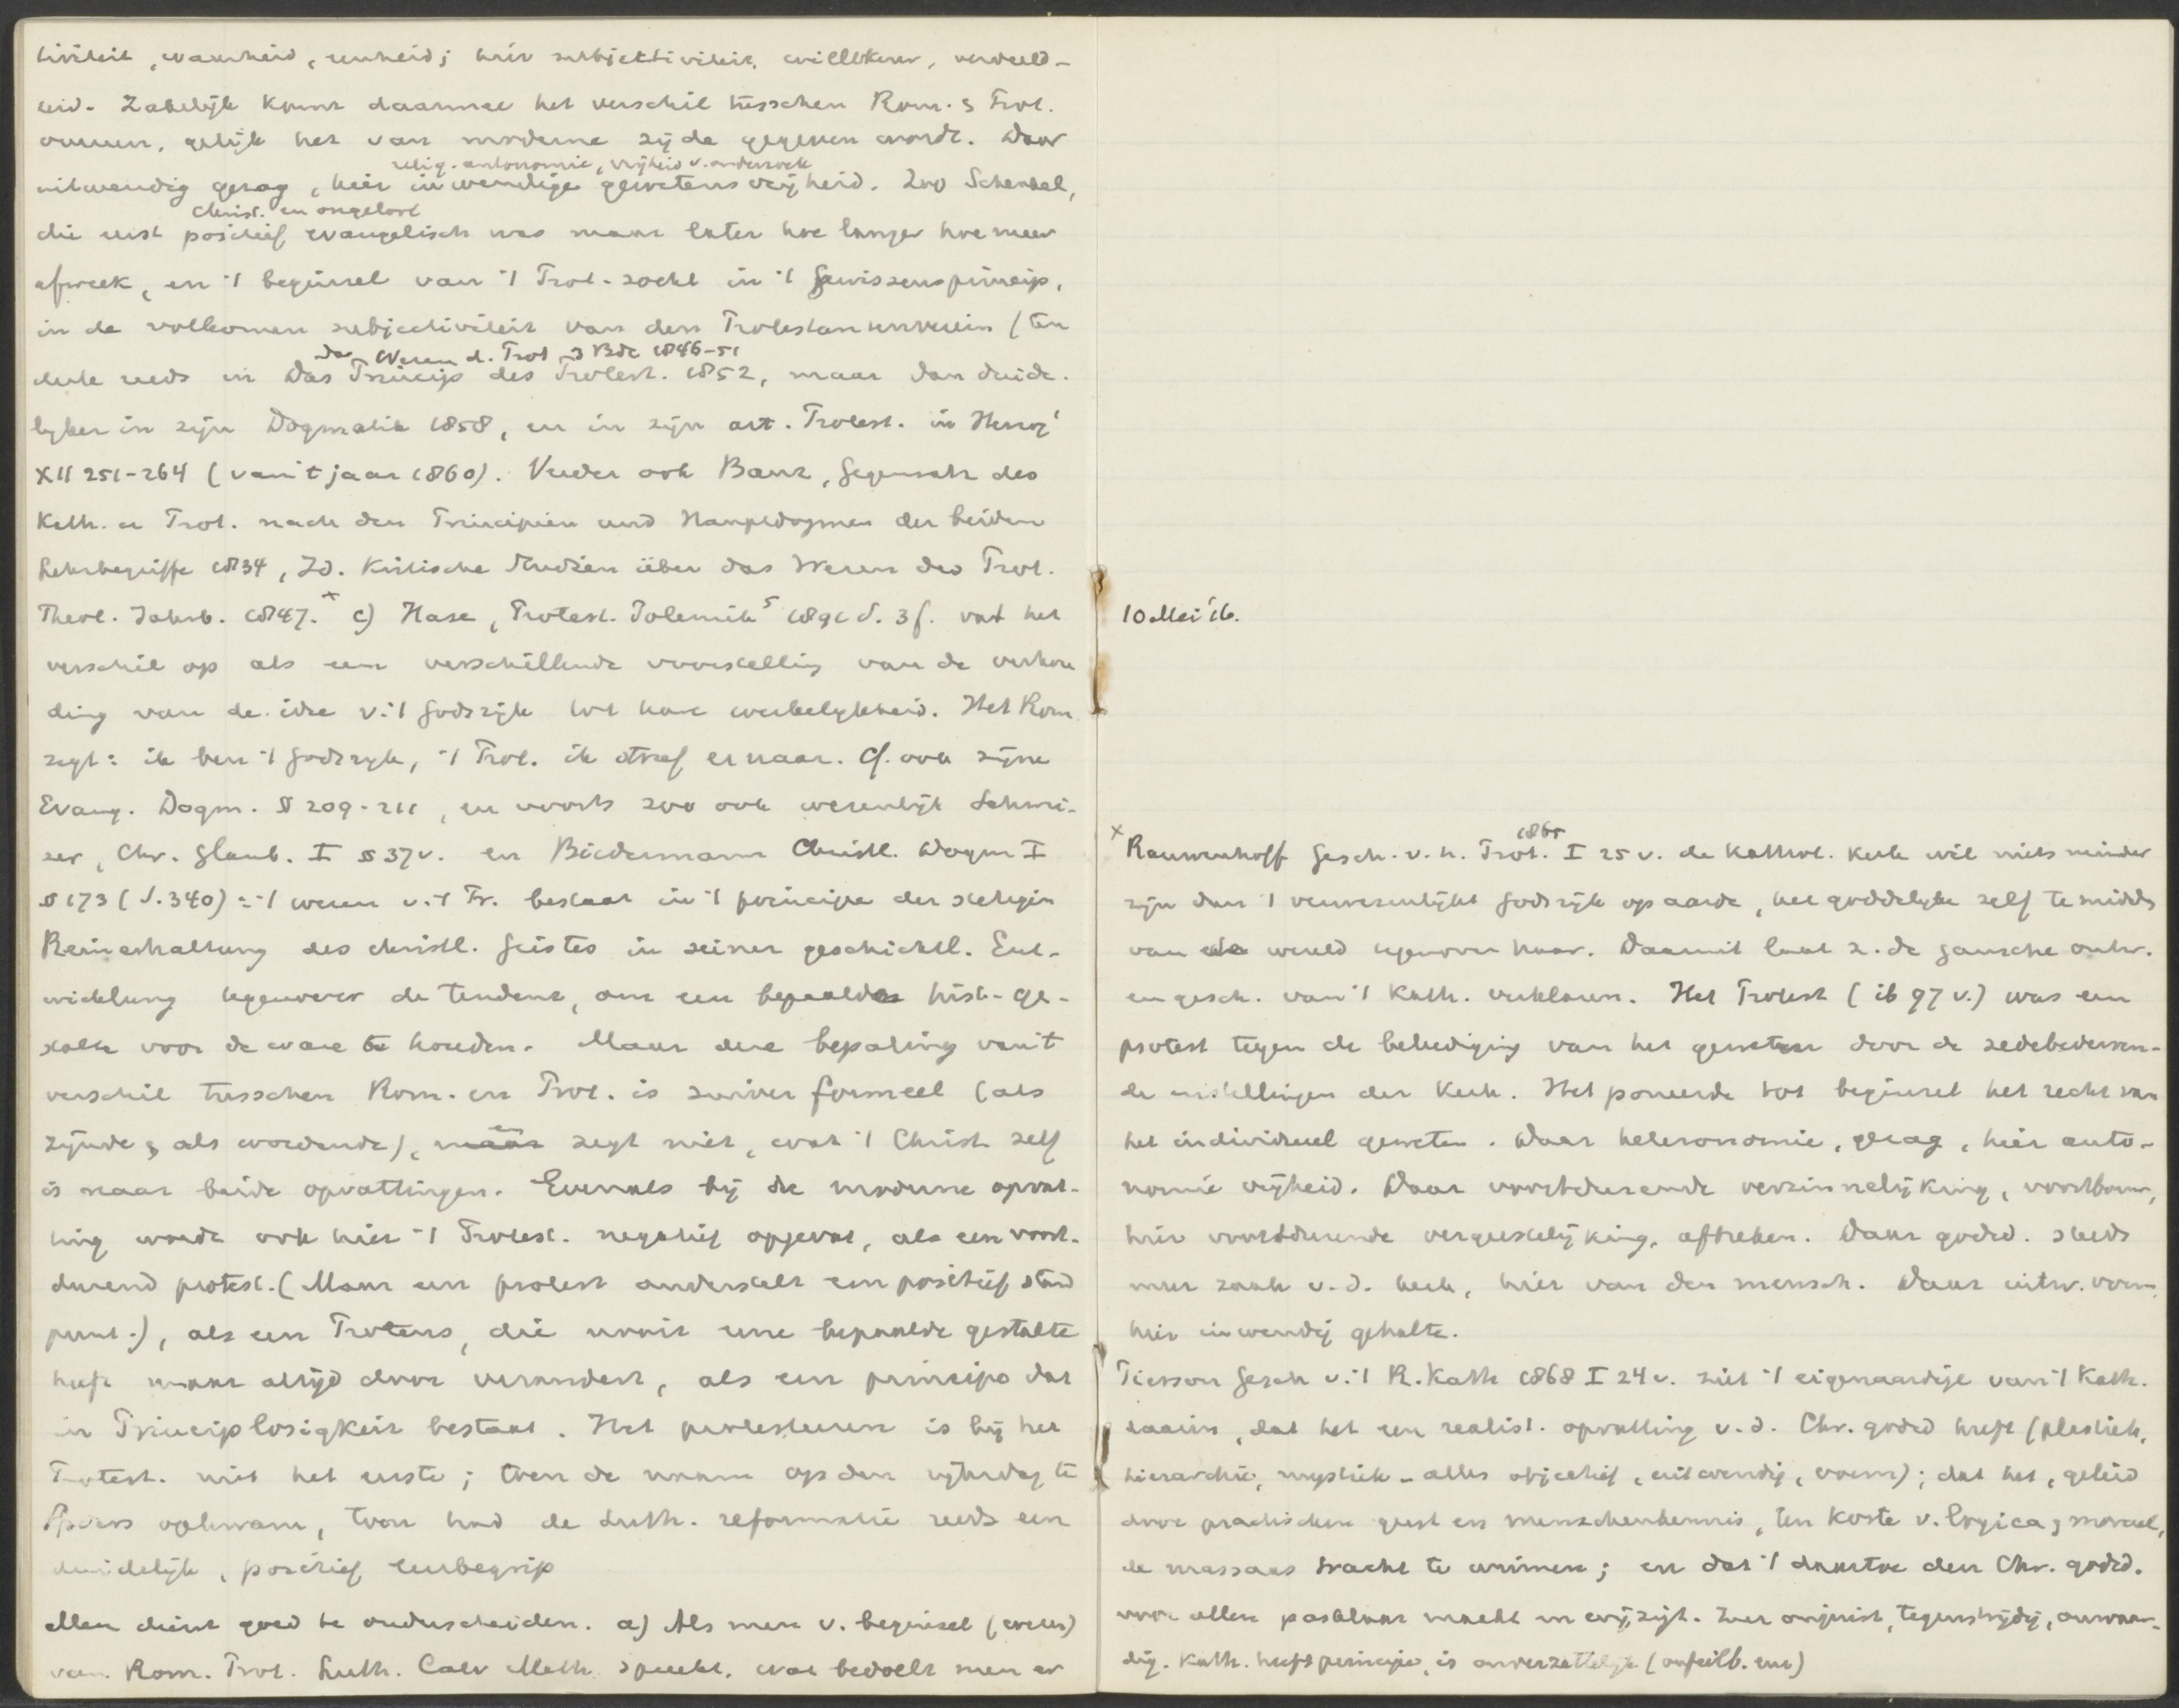 tiviteit, waarheid, eenheid; hier subjectiviteit, willekeur, verdeeld-
heid. Zakelijk komt daarmee het verschil tusschen Rom. & Prot.
overeen, gelijk het van moderne zijde gegeven wordt. Daar
relig. autonomie, vrijheid v. onderzoek
uitwendig gezag, hier inwendige gewetensvrijheid. Zoo Schenkel,
Christ. en ongeloof
die eerst positief evangelisch was maar later hoe langer hoe meer
afweek, en 't beginsel van 't Prot. zocht in 't Gewissensprincip,
in de volkomen subjectiviteit van den Protestantenverein (ten
Das Wesen d. Prot 3 Bde 1846-51
deele reeds in Das Princip des Protest. 1852, maar dan duide-
lijker in zijn Dogmatik 1858, en in zijn art. Protest. in Herzog¹
XII 251-264 (van 't jaar 1860). Verder ook Baur, Gegensatz des
Kath. u Prot. nach den Principien und Hauptdogmen der beiden
Lehrbegriffe 1834, Id. Kritische Studien über das Wesen des Prot.
Theol. Jahrb. 1847. x c) Hase, Protest. Polemik⁵ 1891 S. 3f. vat het
verschil op als een verschillende voorstelling van de verhou
ding van de idee v. 't Godsrijk tot hare werkelijkheid. Het Rom.
zegt: ik ben 't Godsrijk, 't Prot. ik streef ernaar. Cf. ook zijne
Evang. Dogm. § 209-211, en voorts zoo ook wezenlijk Schwei-
zer, Chr. Glaub. I § 37v. en Biedermann Christl. Dogm I
§ 173 (S. 340): 't wezen v. 't Pr. bestaat in 't principe der stetigen
Reinerhaltung des christl. Geistes in seiner geschichtl. Ent-
wicklung tegenover de tendenz, om een bepaalde hist. ge-
stalte voor de ware te houden. Maar deze bepaling van 't
verschil tusschen Rom. en Prot. is zuiver formeel (als
zijnde & als wordende), en zegt niet, wat 't Christ. zelf
is naar beide opvattingen. Evenals bij de moderne opvat-
ting wordt ook hier 't Protest. negatief opgevat, als een voort-
durend protest. (Maar een protest onderstelt een positief stand
punt.), als een Proteus, die nooit eene bepaalde gestalte
heeft maar altijd door verandert, als een principe dat
in Principlosigkeit bestaat. Het protesteeren is bij het
Protest. niet het eerste; toen de naam op den rijksdag te
Spiers opkwam, toen had de Luth. reformatie reeds een
duidelijk, positief leerbegrip
Men dient goed te onderscheiden. a) Als men v. beginsel (wezen)
van Rom. Prot. Luth. Calv Meth. spreekt, wat bedoelt men er
10 Mei '16.
1865
x Rauwenhoff Gesch. v. h. Prot. I 25 v. de Kathol. kerk wil niets minder
zijn dan 't verwezenlijkt Godsrijk op aarde, het goddelijke zelf te midden
van de wereld tegenover haar. Daaruit laat z. de gansche ontw.
en gesch. van 't Kath. verklaren. Het Protest (ib 97 v.) was een
protest tegen de beleediging van het geweten door de zedebederven-
de instellingen der Kerk. Het poneerde tot beginsel het recht van
het individueel geweten. Daar heteronomie, gezag, hier auto-
nomie vrijheid. Daar voortdurende verzinnelijking, voortbouw,
hier voortdurende vergeestelijking, afbreken. Daar godsd. steeds
meer zaak v. d. kerk, hier van den mensch. Daar uitw. vorm,
hier inwendig gehalte.
Pierson Gesch v. 't R. Kath 1868 I 24 v. ziet 't eigenaardige van 't Kath.
daarin, dat het een realist. opvatting v. d. Chr. godsd heeft (plastiek,
hierarchie, mystiek - alles objectief, uitwendig, vorm); dat het, geleid
door practischen geest en menschenkennis, ten koste v. logica & moraal,
de massaas tracht te winnen; en dat 't daartoe den Chr. godsd.
voor allen pasklaar maakt en wijzigt. Zeer onjuist, tegenstrijdig, onwaar-
dig. Kath. heeft principe, is onverzettelijk (onfeilb. enz)